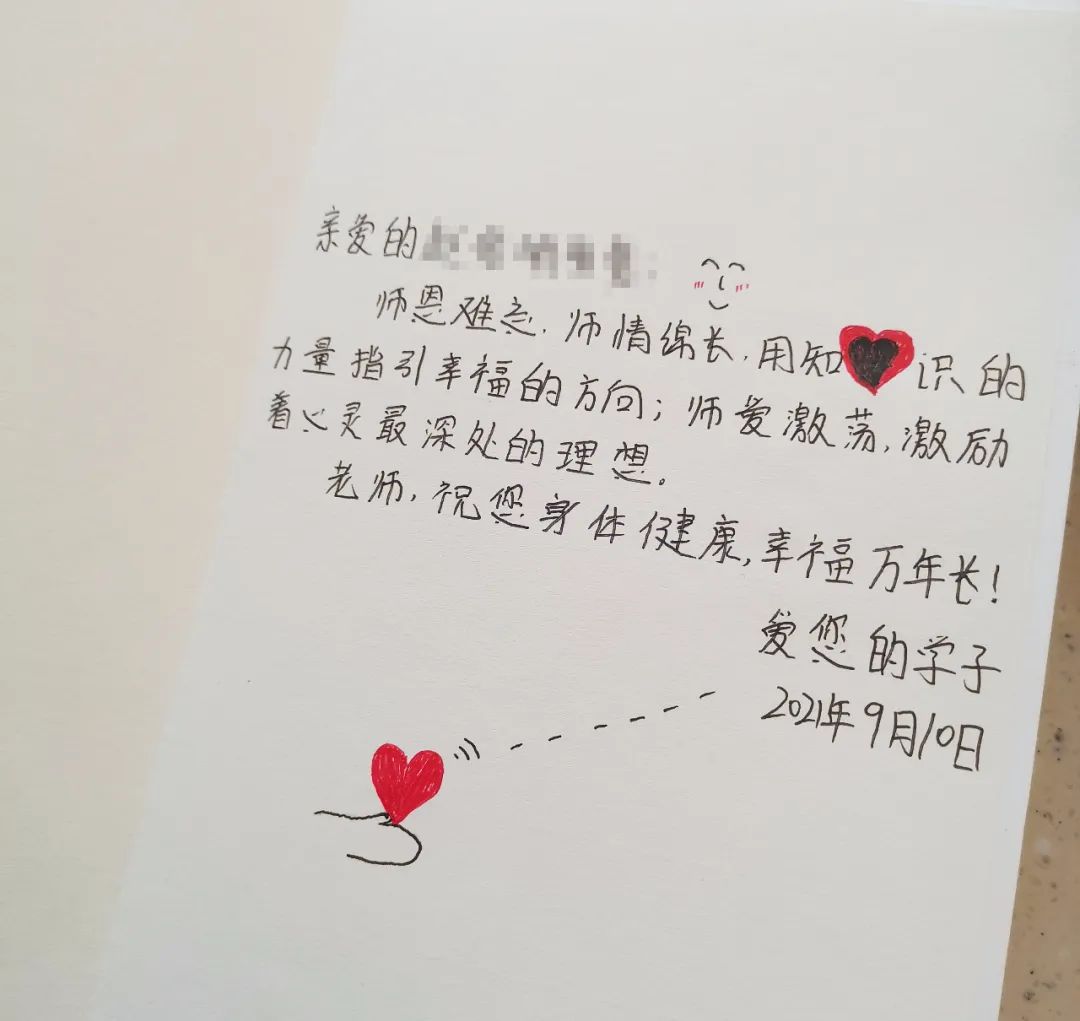 亲爱的
师恩难忘,师情绵长,用知识的
力量指引幸福的方向;师爱激荡,激励
着心灵最深处的理想。
老师,祝您身体健康,幸福万年长!
爱您的学子
2021年9月10日